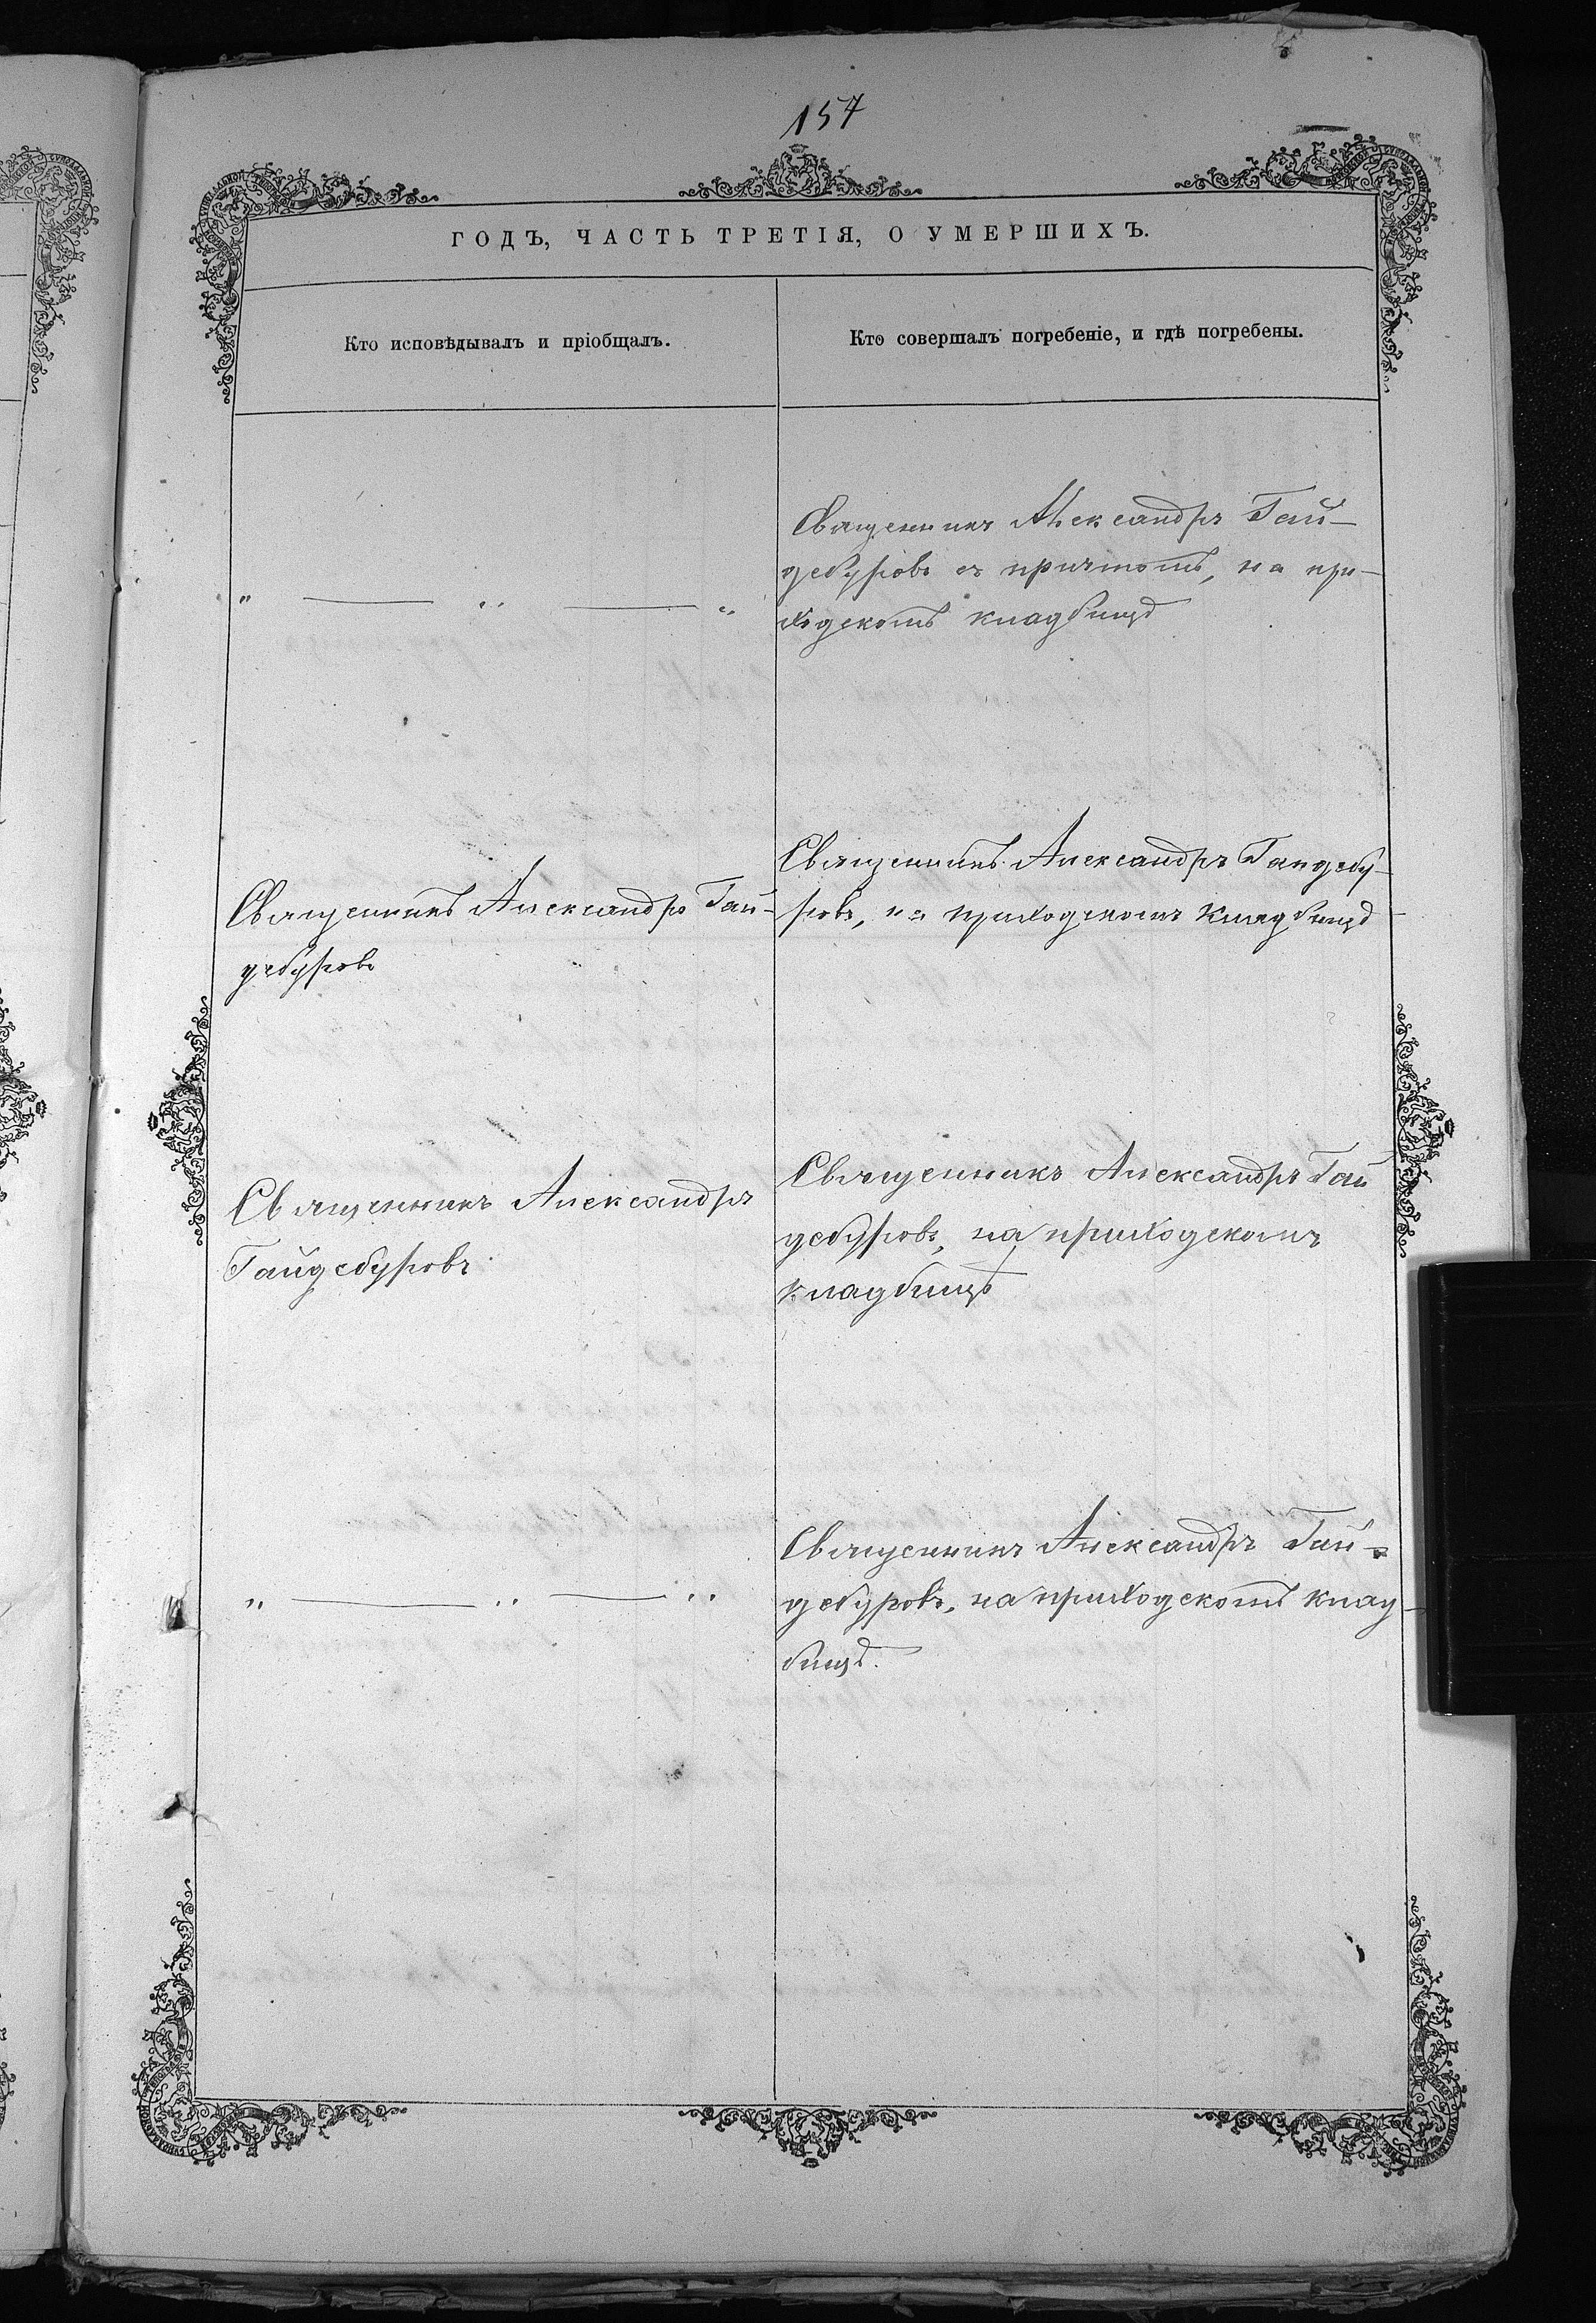 157
ГОДЪ, ЧАСТЬ ТРЕТІЯ, О УМЕРШИХЪ.
Кто исповѣдывалъ и пріобщалъ.
Кто совершалъ погребеніе, и гдѣ погребены.
" — " — "
Священникъ Александръ Гай-
дебуровъ съ причтомъ, на при-
ходскомъ кладбищѣ
Священникъ Александръ Гай-
дебуровъ
Священникъ Александръ Гайдебу-
ровъ, на приходскомъ кладбищѣ
Священникъ Александръ
Гайдебуровъ
Священникъ Александръ Гай
дебуровъ, на приходскомъ
кладбищѣ
" — " — "
Священникъ Александръ Гай-
дебуровъ, на приходскомъ клад-
бищѣ.